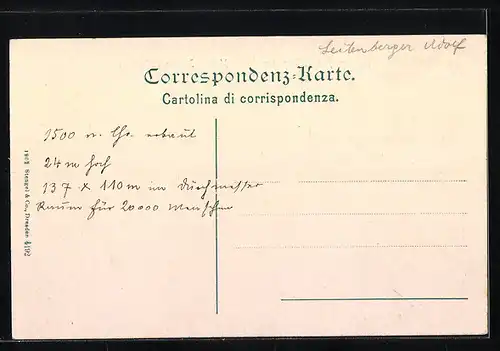 Leitenberger Adolf
Correspondenz-Karte.
Cartolina di corrispondenza.
1500 n. Chr. erbaut
24 m hoch
137 x 110 m im Durchmesser
Raum für 20000 Menschen
Stengel & Co., Dresden